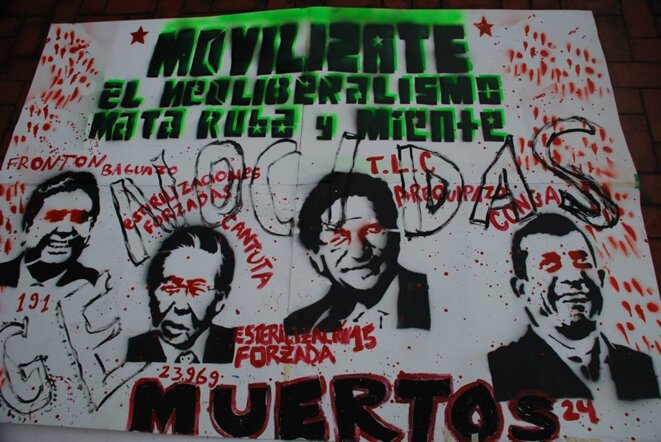 MOVILIZATE
EL NEOLIBERALISMO
MATA ROBA Y MIENTE
GENOCIDAS
FRONTON BAGUAZO
ESTERILIZACIONES
FORZADAS
CANTUTA
T.L.C
AREQUIPAZO
CONGA
191
ESTERILIZACION 15
FORZADA
23,969
24
MUERTOS